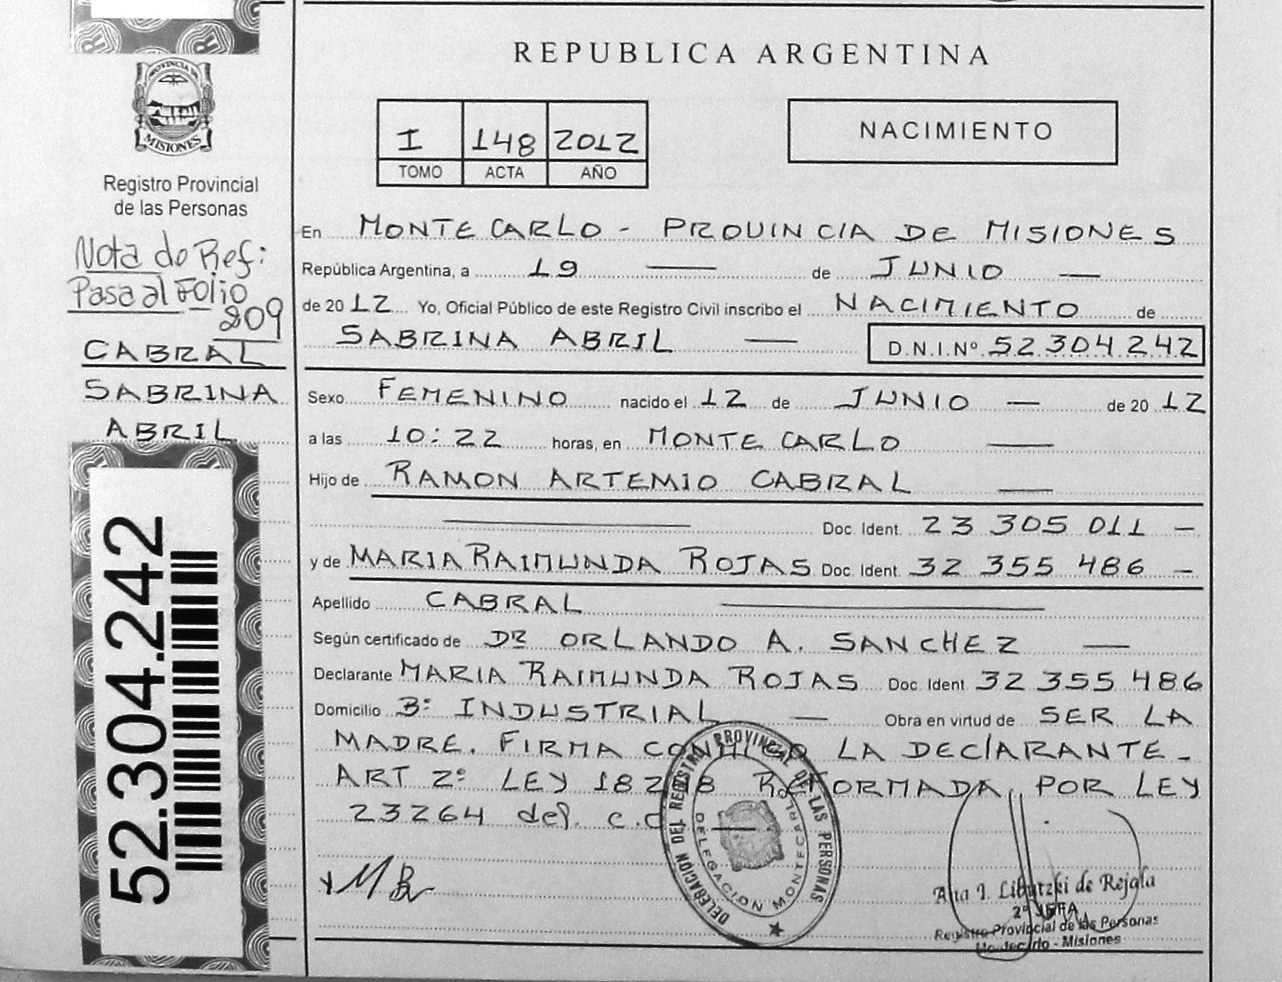 PROVINCIA DE
MISIONES
Registro Provincial
de las Personas
Nota de Ref:
Pasa al Folio
209
CABRAL
SABRINA
ABRIL
52.304.242
REPUBLICA ARGENTINA
I 148 2012
TOMO ACTA AÑO
NACIMIENTO
En MONTE CARLO - PROVINCIA DE MISIONES
República Argentina, a 19 — de JUNIO —
de 2012 Yo, Oficial Público de este Registro Civil inscribo el NACIMIENTO de
SABRINA ABRIL — D.N.I.Nº 52 304 242
Sexo FEMENINO nacido el 12 de JUNIO — de 2012
a las 10:22 horas, en MONTE CARLO —
Hijo de RAMON ARTEMIO CABRAL —
— Doc. Ident. 23 305 011 -
y de MARIA RAIMUNDA ROJAS Doc. Ident. 32 355 486 -
Apellido CABRAL —
Según certificado de DR ORLANDO A. SANCHEZ —
Declarante MARIA RAIMUNDA ROJAS Doc. Ident 32 355 486
Domicilio Bº INDUSTRIAL — Obra en virtud de SER LA
MADRE. FIRMA CONMIGO LA DECLARANTE -
ART 2º LEY 18248 REFORMADA POR LEY
23264 del. c.c —
DELEGACION DEL REGISTRO PROVINCIAL DE LAS PERSONAS
DELEGACION MONTECARLO
Ana I. Libutzki de Rejala
2º JEFA
Registro Provincial de las Personas
Montecarlo - Misiones